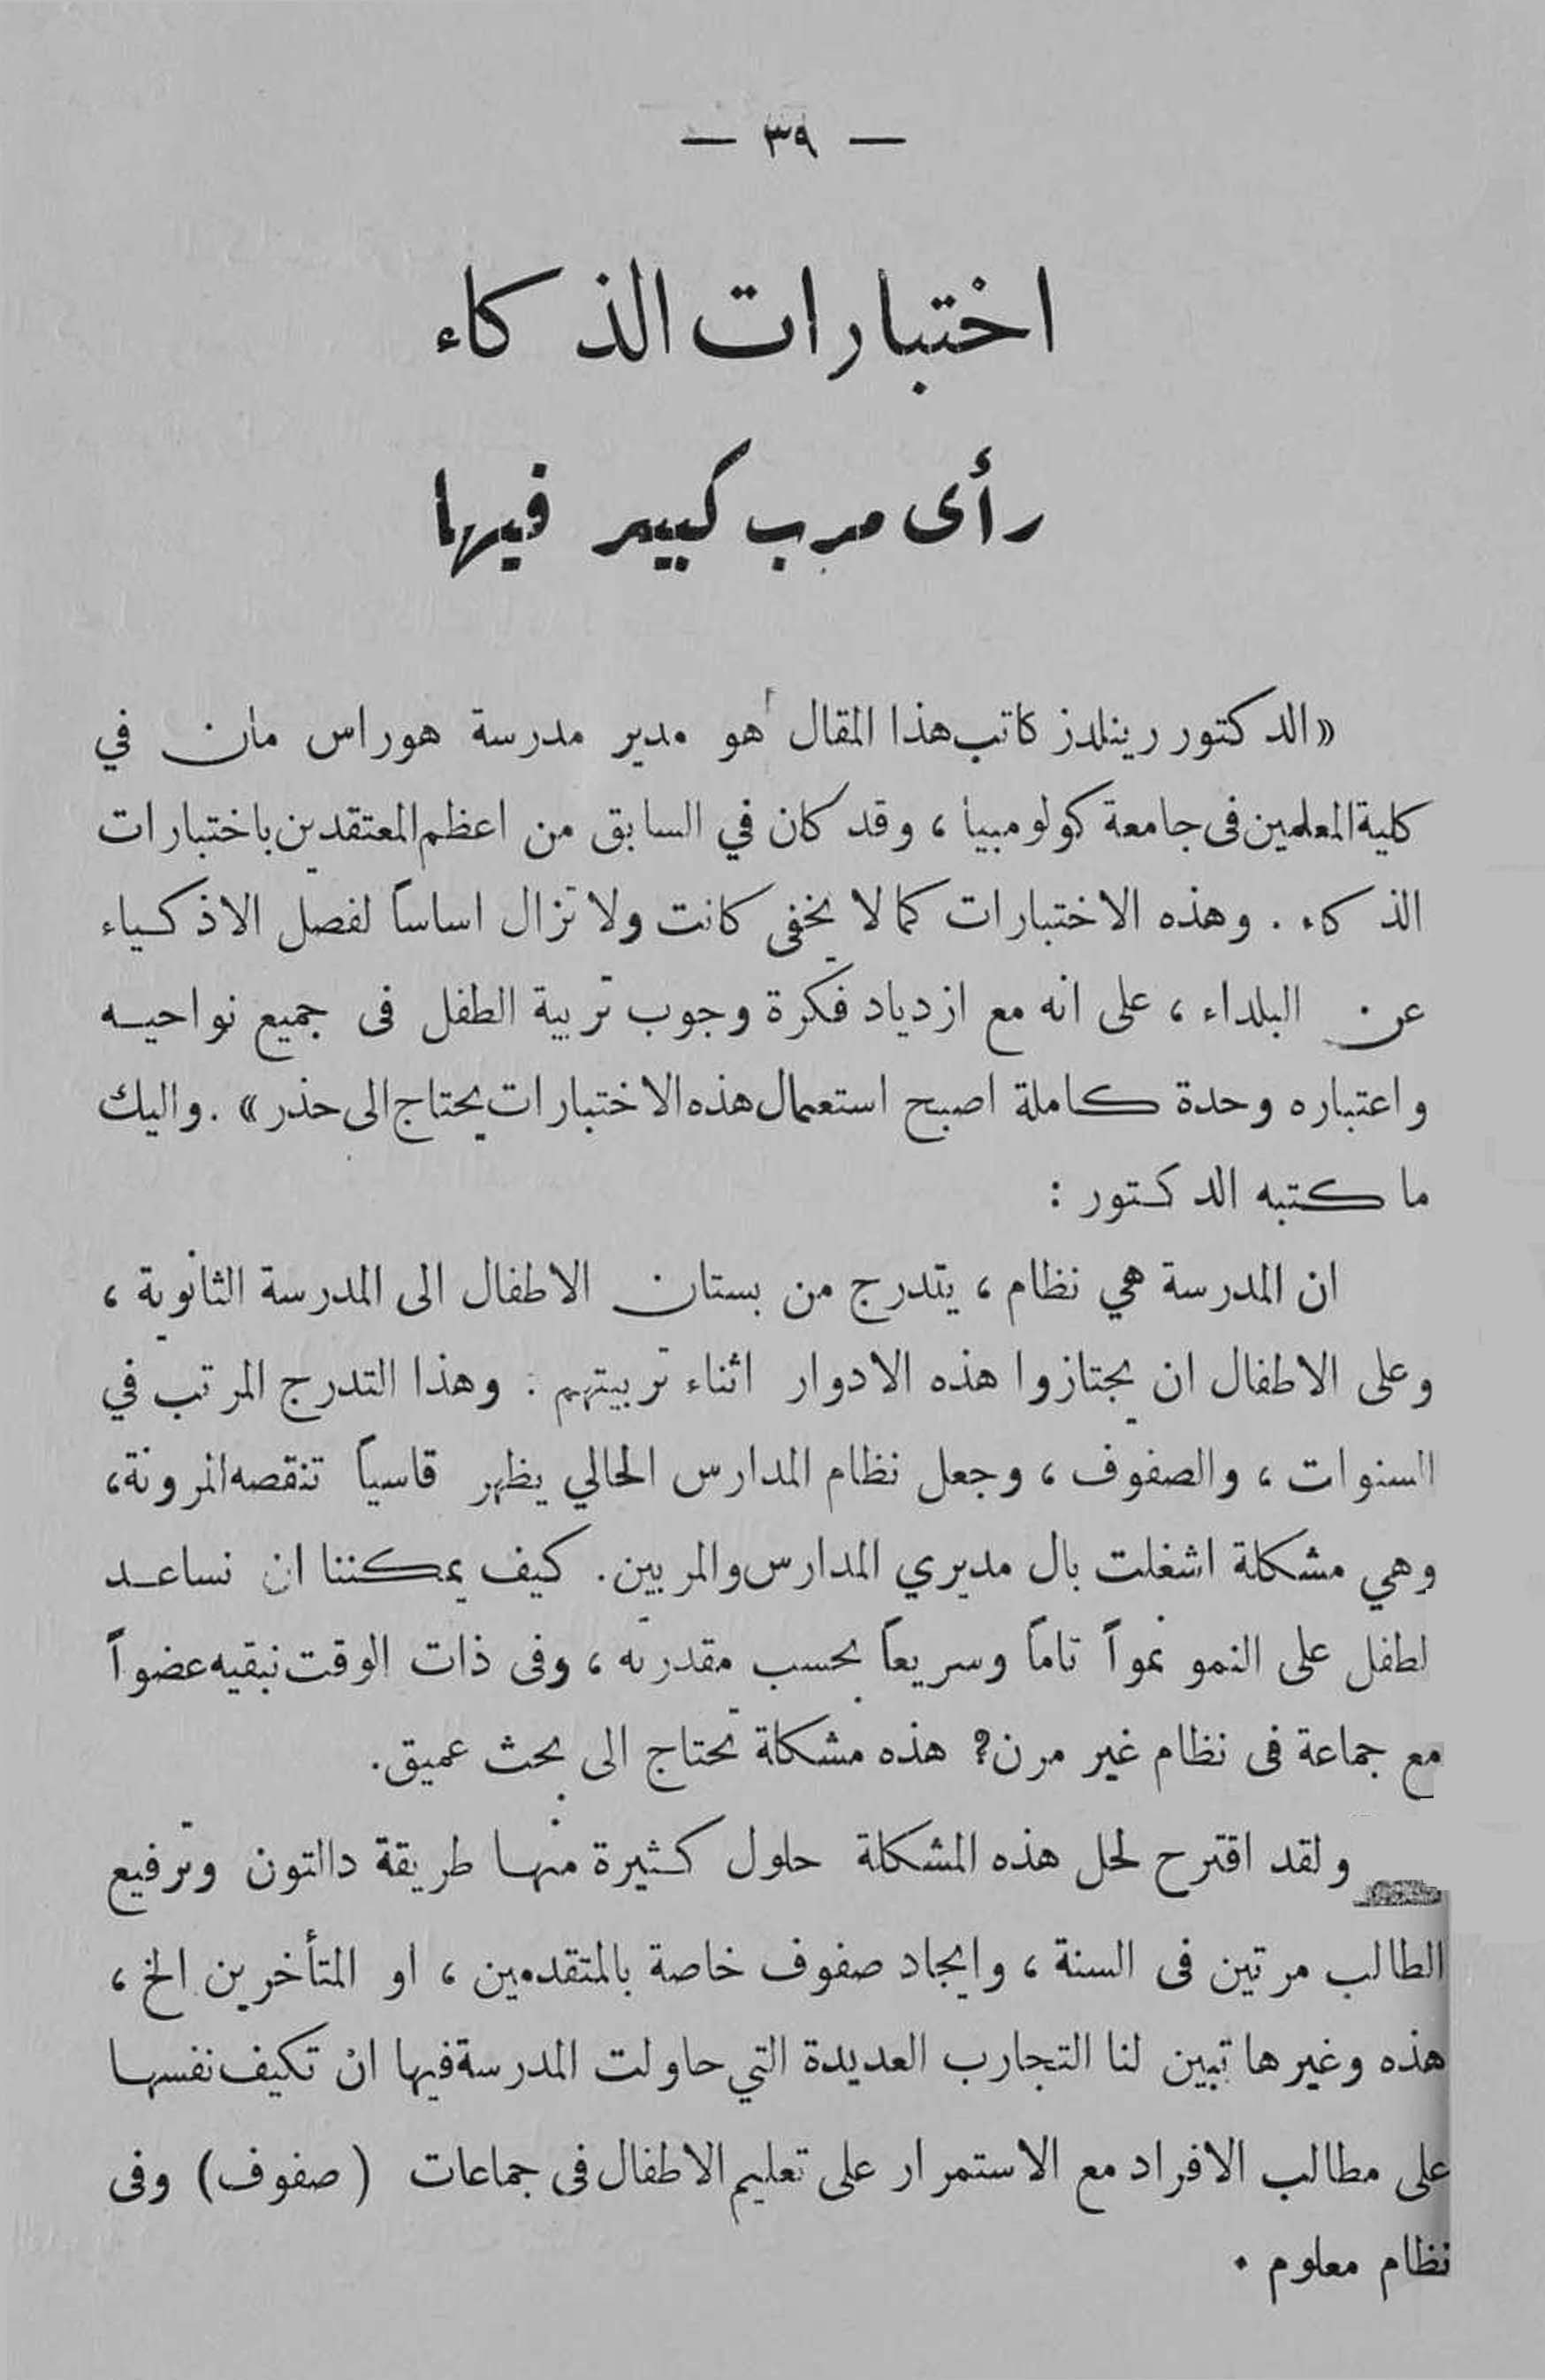 — ٣٩ —
اختبارات الذكاء
رأى مرب كبير فيها
«الدكتور رينلدز كاتب هذا المقال هو مدير مدرسة هوراس مان في
كلية المعلمين فى جامعة كولومبيا ، وقد كان في السابق من اعظم المعتقدين باختبارات
الذكاء . وهذه الاختبارات كما لا يخفى كانت ولا تزال اساساً لفصل الاذكياء
عن البلداء ، على انه مع ازدياد فكرة وجوب تربية الطفل فى جميع نواحيه
واعتباره وحدة كاملة اصبح استعمال هذه الاختبارات يحتاج الى حذر» . واليك
ما كتبه الدكتور :
ان المدرسة هي نظام ، يتدرج من بستان الاطفال الى المدرسة الثانوية ،
وعلى الاطفال ان يجتازوا هذه الادوار اثناء تربيتهم . وهذا التدرج المرتب في
السنوات ، والصفوف ، وجعل نظام المدارس الحالي يظهر قاسياً تنقصه المرونة ،
وهي مشكلة اشغلت بال مديري المدارس والمربين . كيف يمكننا ان نساعد
لطفل على النمو نمواً تاماً وسريعاً بحسب مقدرته ، وفى ذات الوقت نبقيه عضواً
مع جماعة فى نظام غير مرن؟ هذه مشكلة تحتاج الى بحث عميق .
ولقد اقترح لحل هذه المشكلة حلول كثيرة منها طريقة دالتون وترفيع
الطالب مرتين فى السنة ، وايجاد صفوف خاصة بالمتقدمين ، او المتأخرين الخ ،
هذه وغيرها تبين لنا التجارب العديدة التي حاولت المدرسة فيها ان تكيف نفسها
على مطالب الافراد مع الاستمرار على تعليم الاطفال فى جماعات (صفوف) وفى
نظام معلوم .